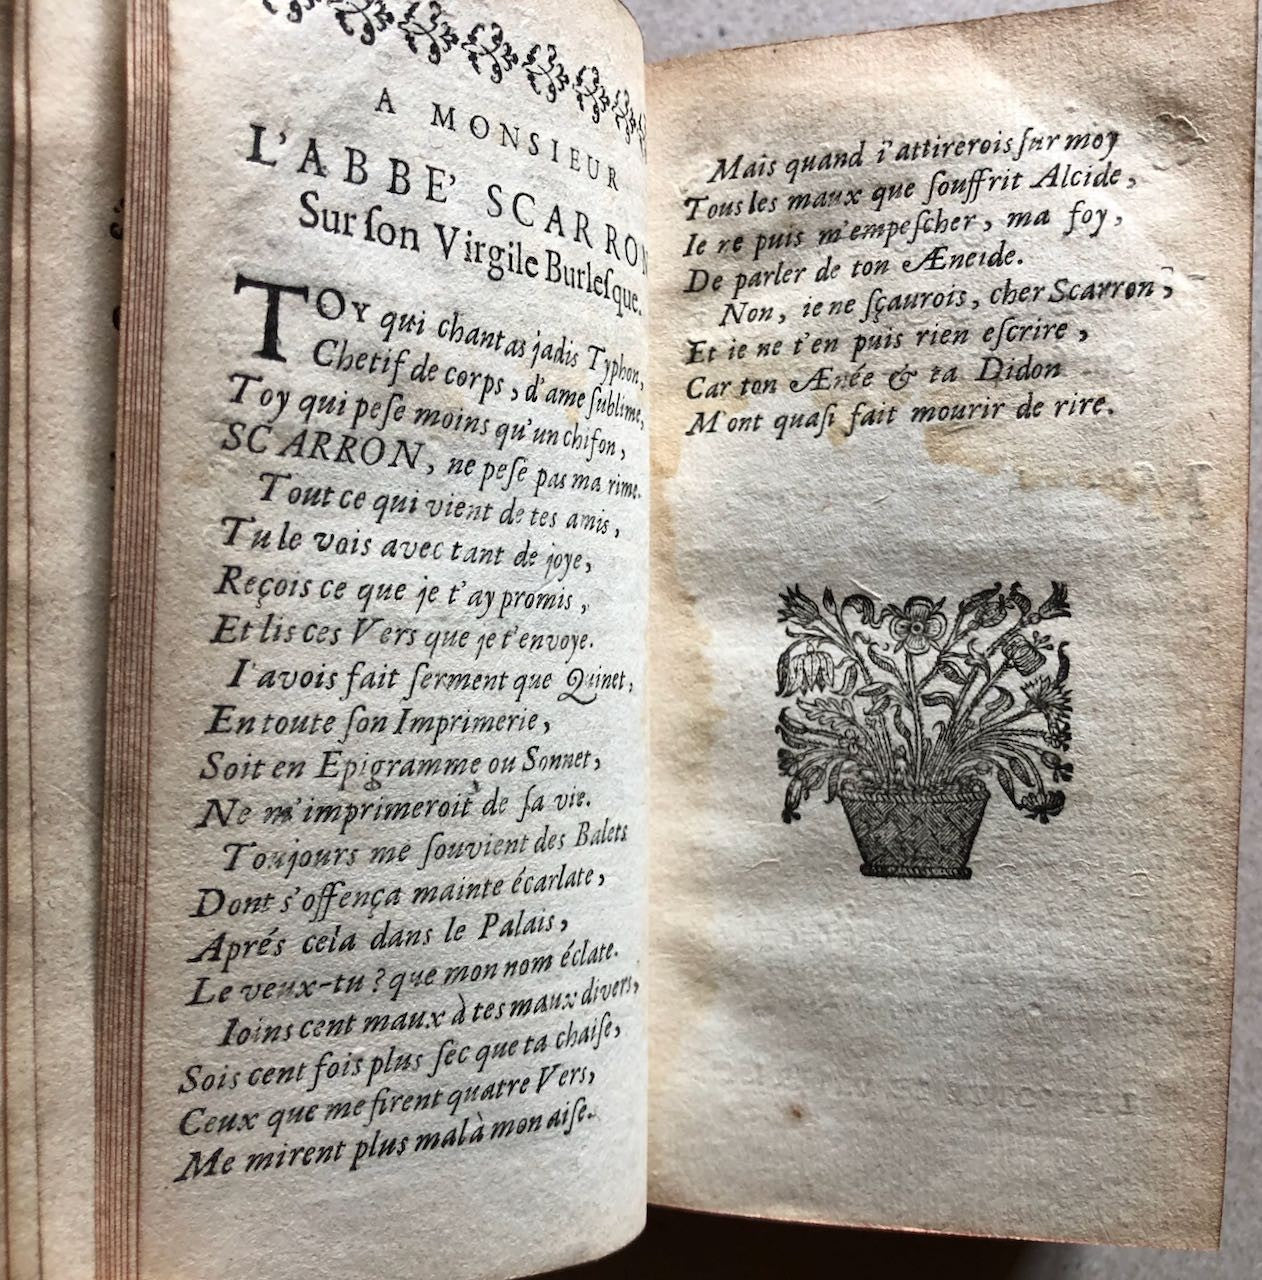 A MONSIEUR
L'ABBE' SCARRON
Sur ſon Virgile Burleſque.
TOY qui chantas jadis Typhon,
Chetif de corps, d'ame ſublime,
Toy qui peſe moins qu'un chifon,
SCARRON, ne peſe pas ma rime.
Tout ce qui vient de tes amis,
Tu le vois avec tant de joye,
Reçois ce que je t'ay promis,
Et lis ces Vers que je t'envoye.
I'avois fait ſerment que Quinet,
En toute ſon Imprimerie,
Soit en Epigramme ou Sonnet,
Ne m'imprimeroit de ſa vie.
Toujours me ſouvient des Balets
Dont s'offença mainte écarlate,
Aprés cela dans le Palais,
Le veux-tu? que mon nom éclate.
Ioins cent maux à tes maux divers,
Sois cent fois plus ſec que ta chaiſe,
Ceux que me firent quatre Vers,
Me mirent plus mal à mon aiſe.
Mais quand i'attirerois ſur moy
Tous les maux que ſouffrit Alcide,
Ie ne puis m'empeſcher, ma foy,
De parler de ton Æneide.
Non, ie ne ſçaurois, cher Scarron,
Et ie ne t'en puis rien eſcrire,
Car ton Ænée & ta Didon
M'ont quaſi fait mourir de rire.